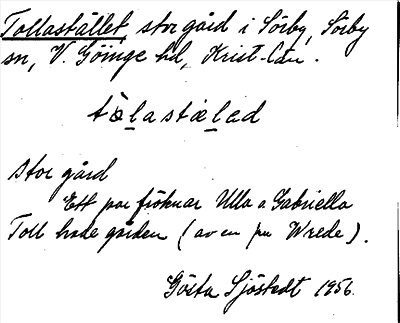 Tollastället, stor gård i Sörby, Sörby
sn, V. Göinge hd, Krist. län.
tòlastæ̀led
stor gård
Ett par fröknar Ulla o Gabriella
Toll hade gården (av en fru Wrede).
Gösta Sjöstedt 1956.